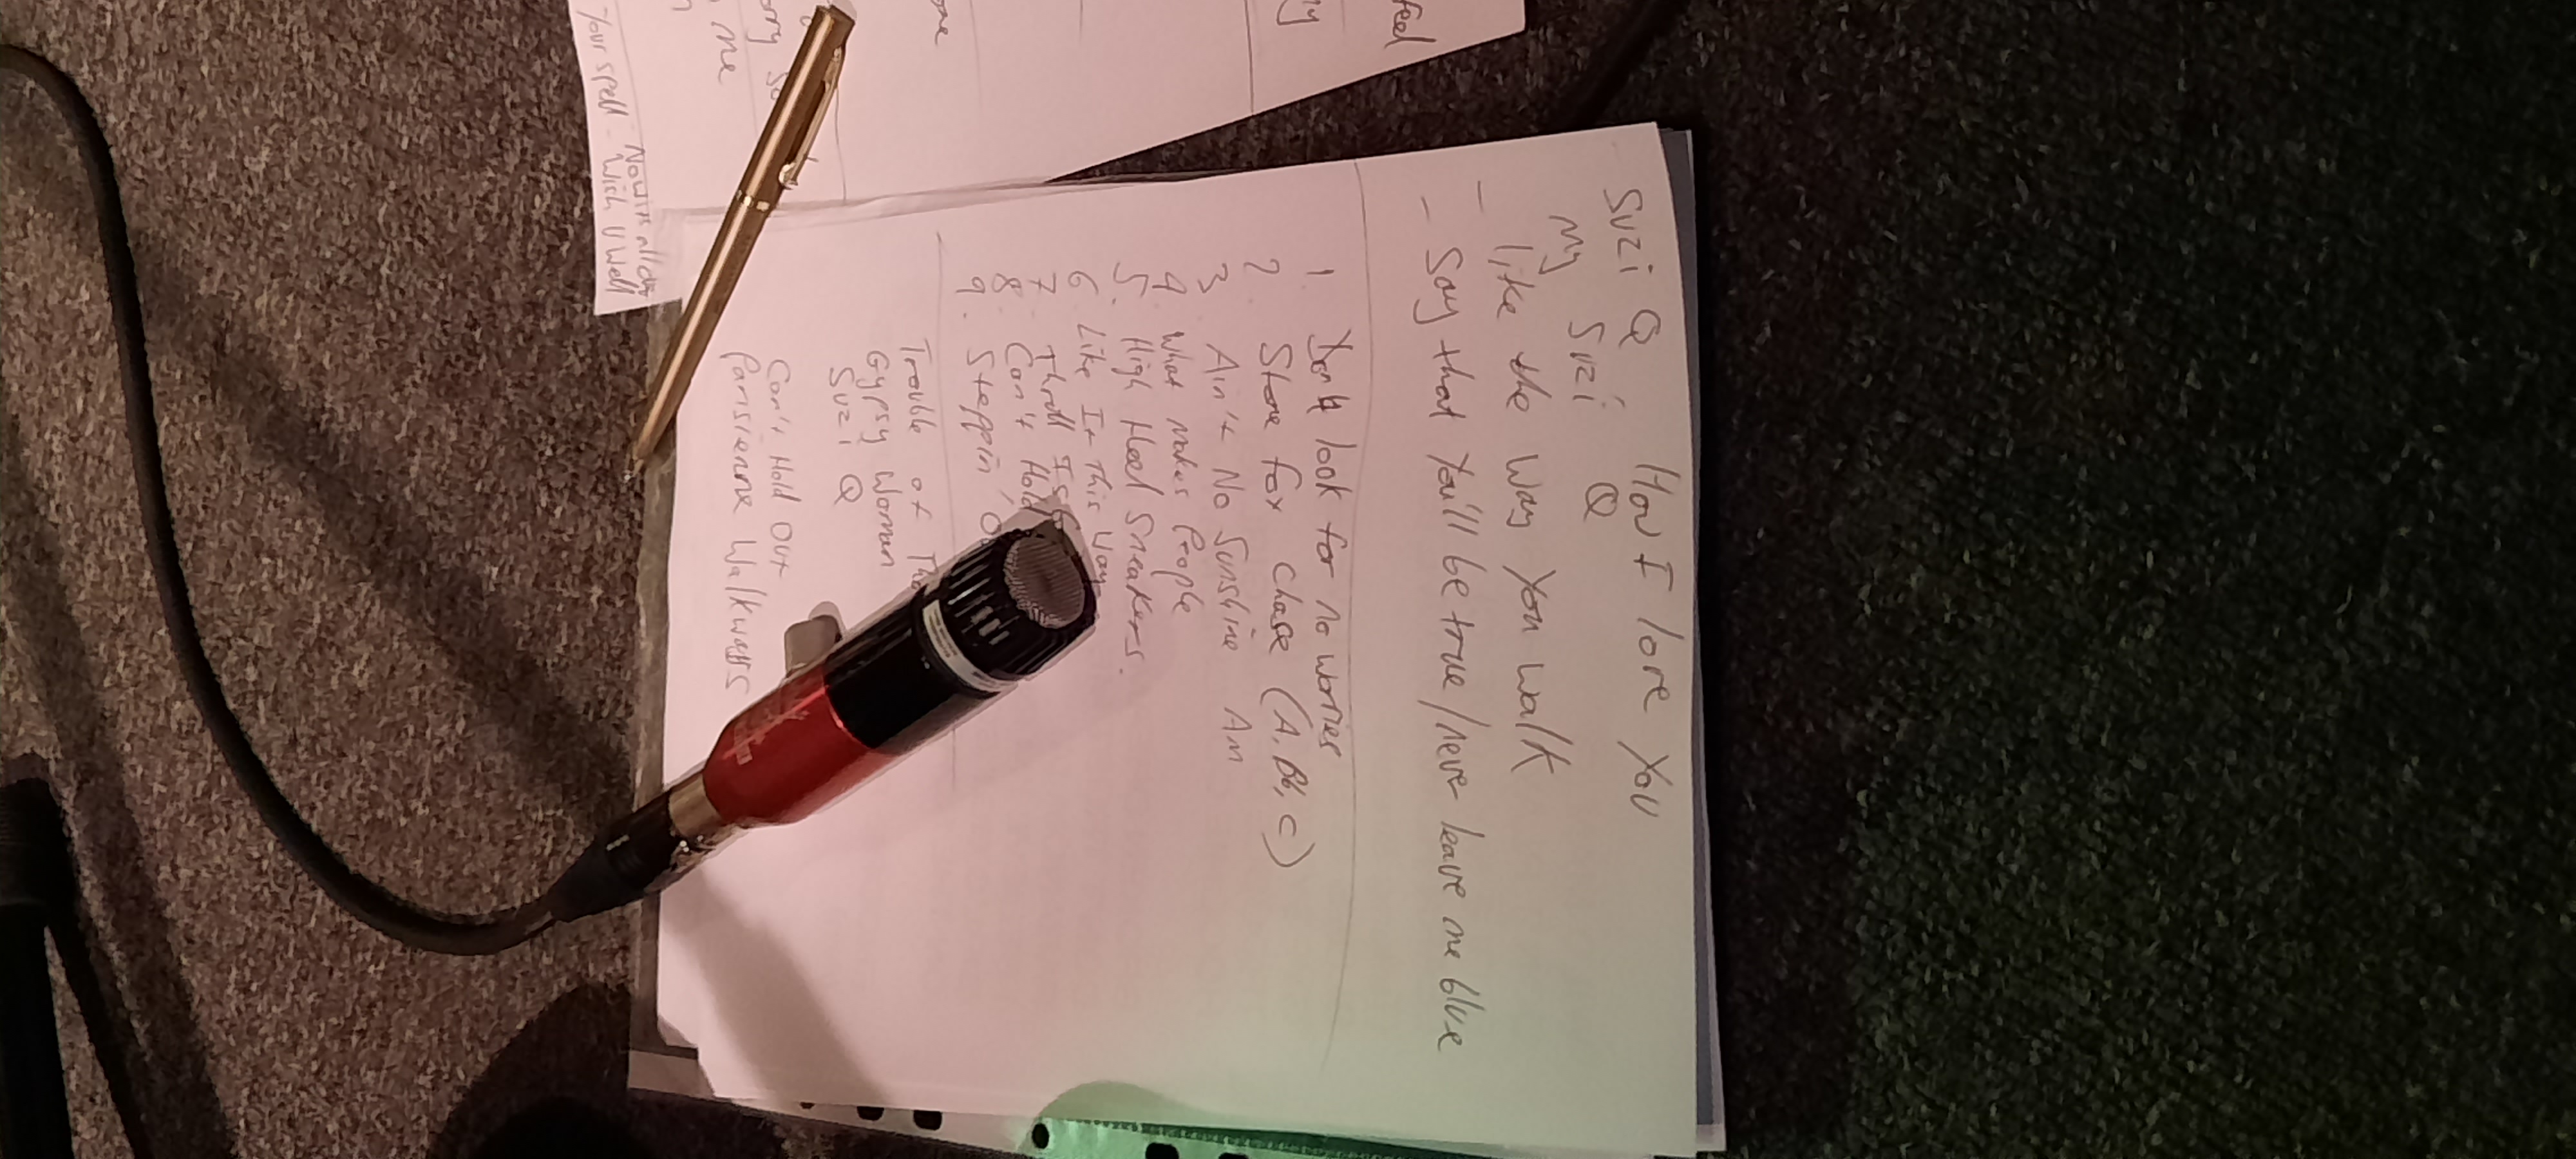 Suzi Q How I love You
My Suzi Q
- like the way you walk
- Say that You'll be true/never leave me blue
1. Don't look for no worries
2. Stone fox Chase (A, Bb, C)
3. Ain't No Sunshine Am
4. What makes People
5. High Heel Sneakers.
6. Like It This Way
7. Thrill Is
8. Can't Hold
9. Steppin' O
Trouble of The
Gypsy Woman
Suzi Q
Can't Hold Out
Parisienne Walkways
feel
ny
one
orry so
me
Now it's all over
your spell - Wish U Well